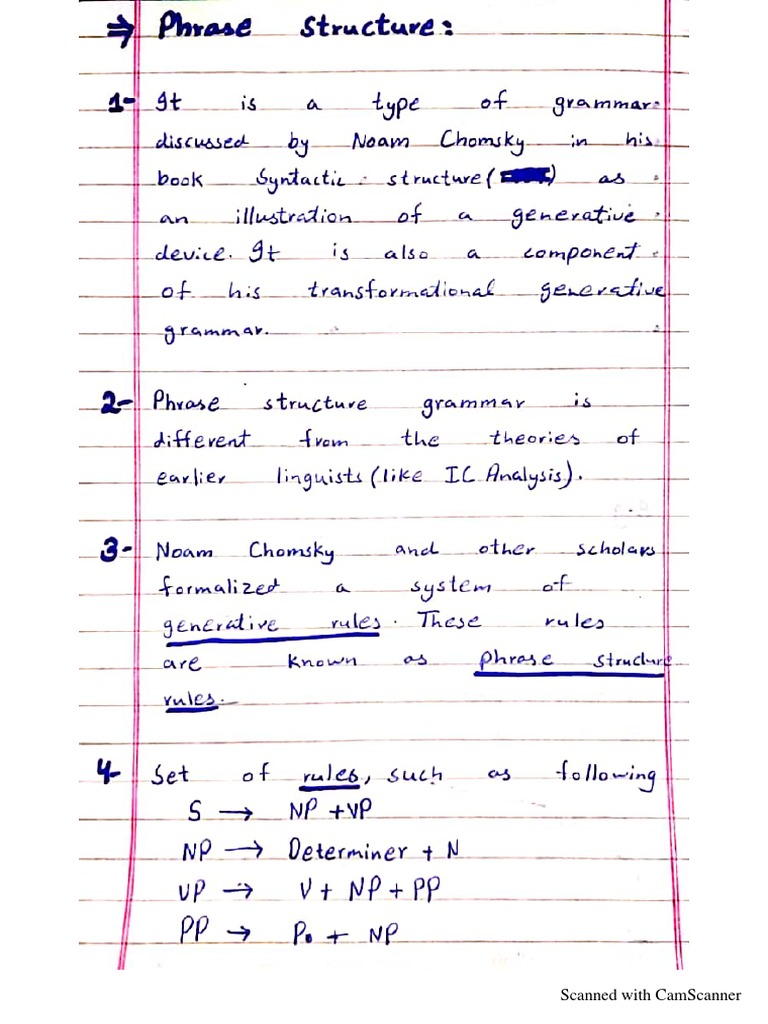 ⇒ Phrase Structure:
1- It is a type of grammar
discussed by Noam Chomsky in his
book Syntactic structure ( ) as
an illustration of a generative
device. It is also a component
of his transformational generative
grammar.
2- Phrase structure grammar is
different from the theories of
earlier linguists (like IC Analysis).
3- Noam Chomsky and other scholars
formalized a system of
generative rules. These rules
are known as phrase structure
rules.
4- Set of rules, such as following
S → NP + VP
NP → Determiner + N
VP → V + NP + PP
PP → P. + NP
Scanned with CamScanner